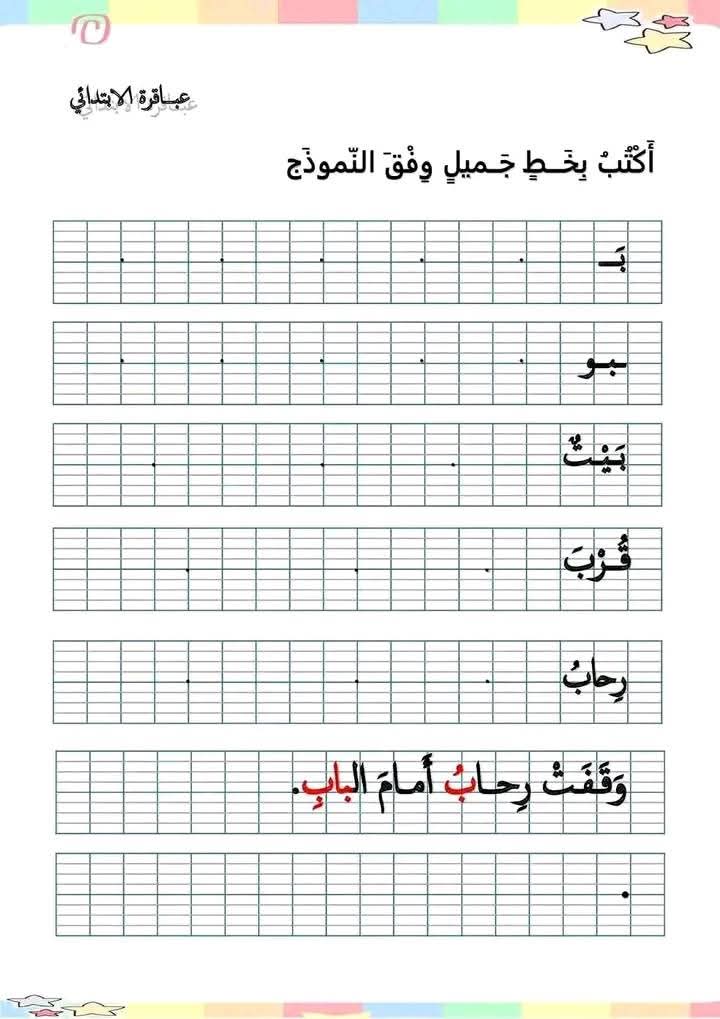 عباقرة الابتدائي
أَكْتُبُ بِخَــطٍ جَـميلٍ وِفْقَ النّموذَج
بَـ
ـبـو
بَـيْـتٌ
قُـرْبَ
رِحابُ
وَقَـفَـتْ رِحـابُ أَمـامَ الـبابِ.